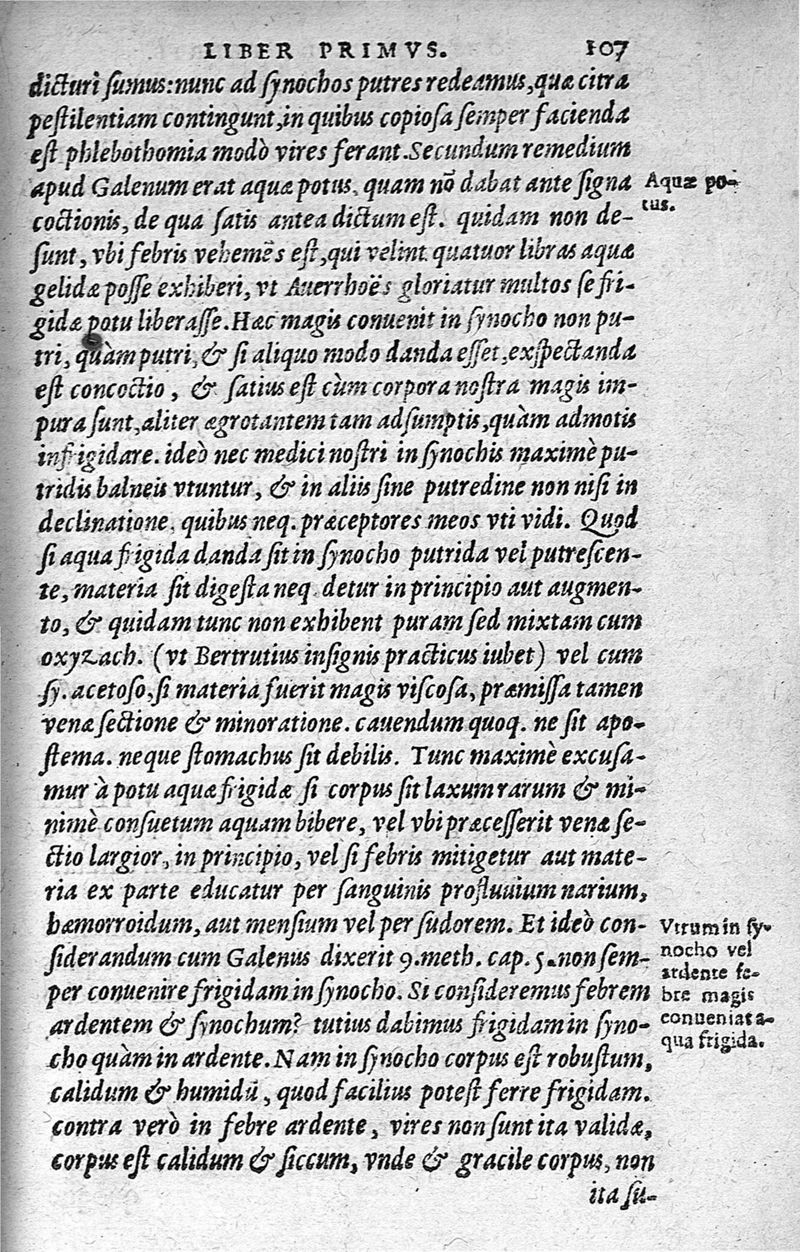 LIBER PRIMVS. 107
dicturi sumus: nunc ad synochos putres redeamus, quæ citra
pestilentiam contingunt, in quibus copiosa semper facienda
est phlebothomia modò vires ferant. Secundum remedium
apud Galenum erat aquæ potus, quam nō dabat ante signa
Aquæ po-
tus.
coctionis, de qua satis antea dictum est. quidam non de-
sunt, vbi febris vehemēs est, qui velint quatuor libras aquæ
gelidæ posse exhiberi, vt Auerrhoës gloriatur multos se fri-
gidæ potu liberasse. Hæc magis conuenit in synocho non pu-
tri, quàm putri, & si aliquo modo danda esset, exspectanda
est concoctio, & satius est cùm corpora nostra magis im-
pura sunt, aliter ægrotantem tam adsumptis, quàm admotis
infrigidare. ideò nec medici nostri in synochis maximè pu-
tridis balneis vtuntur, & in aliis sine putredine non nisi in
declinatione. quibus neq. præceptores meos vti vidi. Quod
si aqua frigida danda sit in synocho putrida vel putrescen-
te, materia sit digesta neq. detur in principio aut augmen-
to, & quidam tunc non exhibent puram sed mixtam cum
oxyzach. (vt Bertrutius insignis practicus iubet) vel cum
sy. acetoso, si materia fuerit magis viscosa, præmissa tamen
venæ sectione & minoratione. cauendum quoq. ne sit apo-
stema. neque stomachus sit debilis. Tunc maximè excusa-
mur à potu aquæ frigidæ si corpus sit laxum rarum & mi-
nimè consuetum aquam bibere, vel vbi præcesserit venæ se-
ctio largior, in principio, vel si febris mitigetur aut mate-
ria ex parte educatur per sanguinis profluuium narium,
hæmorroidum, aut mensium vel per sudorem. Et ideò con-
siderandum cum Galenus dixerit 9. meth. cap. 5. non sem-
per conuenire frigidam in synocho. Si consideremus febrem
ardentem & synochum? tutius dabimus frigidam in syno-
cho quàm in ardente. Nam in synocho corpus est robustum,
Vtrum in sy-
nocho vel
ardente fe-
bre magis
conueniat a-
qua frigida.
calidum & humidū, quod facilius potest ferre frigidam.
contra verò in febre ardente, vires non sunt ita validæ,
corpus est calidum & siccum, vnde & gracile corpus, non
ita su-